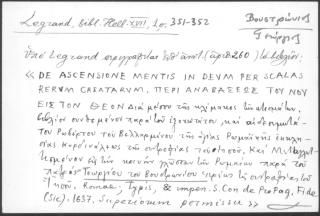 Legrand, Bibl. Hell. XVII, 1ο. 351-352
Βουστρώνιος
Γεώργιος
Ὑπὸ Legrand περιγράφεται ὑπ' ἀριθ. (ἀριθ 260) τὸ βιβλίον:
« DE ASCENSIONE MENTIS IN DEVM PER SCALAS
RERVM CREATARVM. ΠΕΡΙ ΑΝΑΒΑΣΕΩΣ ΤΟΥ ΝΟΥ
ΕΙΣ ΤΟΝ ΘΕΟΝ Διὰ μέσου τῆς κλίμακος τῶν κτισμάτων,
βιβλίον συνθεμένον παρὰ τοῦ ἐξοχωτάτου, καὶ αἰδεσιμωτά-
του Ροβέρτου τοῦ Βελλαρμίνου τῆς ἁγίας Ρωμαϊκῆς ἐκκλη-
σίας Καρδιναλέως τῆς συντροφίας τοῦ Ἰησοῦ, Καὶ Μεταγλωτ-
τισμένον εἰς τὴν κοινὴν γλῶσσαν τῶν Ρωμαίων παρὰ τοῦ
πατρὸς Γεωργίου τοῦ Βουστρωνίου ἱερέως τῆς συντροφίας τοῦ
Ἰησοῦ. Romae, Typis, & impen. S. Con de Propag. Fide
(sic). 1637. Superiorum permissu »